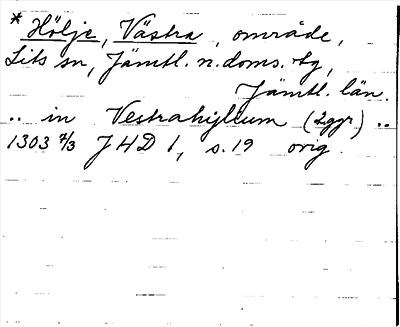 * Hölje, Västra, område,
Lits sn, Jämtl. n. doms. tg,
Jämtl. län.
.. in Vestrahylium (2ggr) ..
1303 2/3 JHD 1, s. 19 orig.